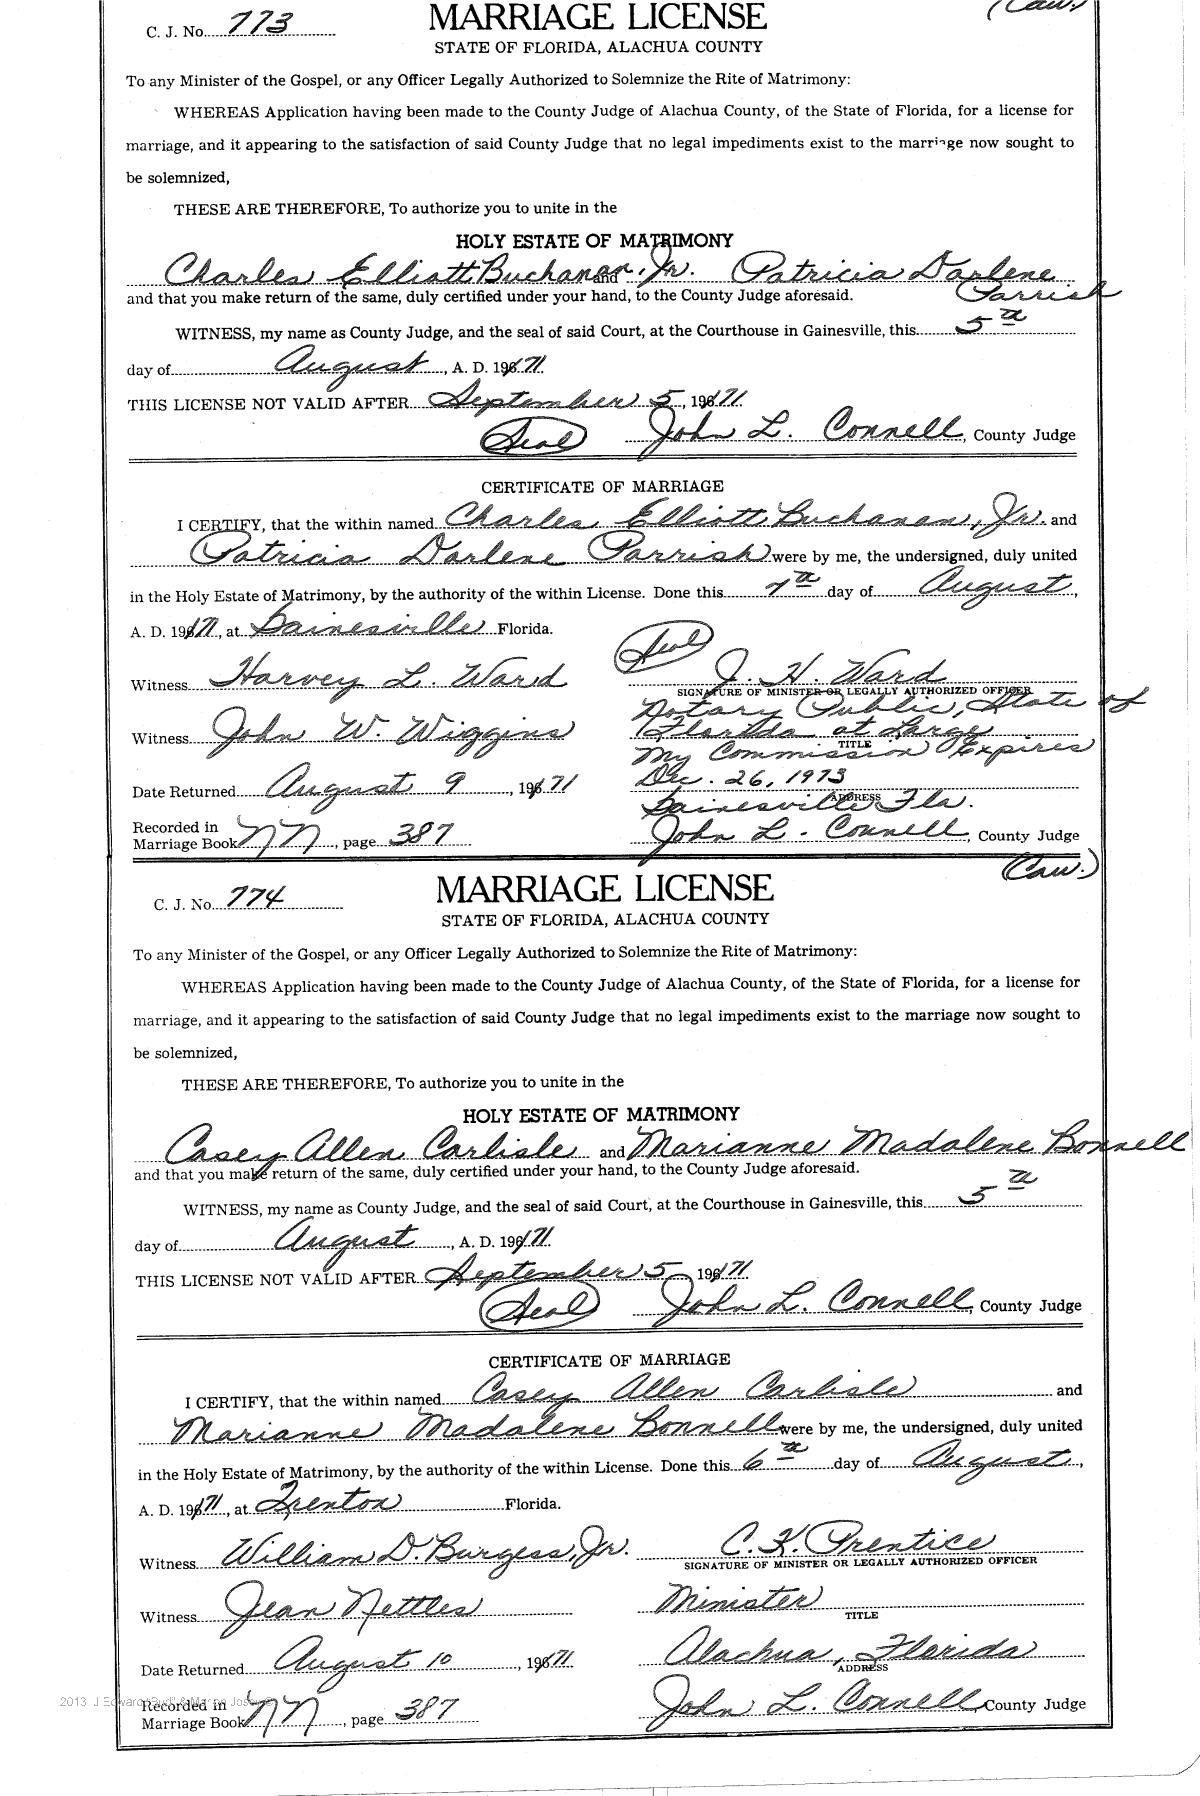 (Caw.)
C. J. No. 773 MARRIAGE LICENSE
STATE OF FLORIDA, ALACHUA COUNTY
To any Minister of the Gospel, or any Officer Legally Authorized to Solemnize the Rite of Matrimony:
WHEREAS Application having been made to the County Judge of Alachua County, of the State of Florida, for a license for
marriage, and it appearing to the satisfaction of said County Judge that no legal impediments exist to the marriage now sought to
be solemnized,
THESE ARE THEREFORE, To authorize you to unite in the
HOLY ESTATE OF MATRIMONY
Charles Elliott Buchanan, Jr. and Patricia Darlene
Parrish
and that you make return of the same, duly certified under your hand, to the County Judge aforesaid.
WITNESS, my name as County Judge, and the seal of said Court, at the Courthouse in Gainesville, this 5th
day of August, A. D. 1971
THIS LICENSE NOT VALID AFTER September 5, 1971
(Seal) John L. Connell, County Judge
CERTIFICATE OF MARRIAGE
I CERTIFY, that the within named Charles Elliott Buchanan, Jr. and
Patricia Darlene Parrish were by me, the undersigned, duly united
in the Holy Estate of Matrimony, by the authority of the within License. Done this 7th day of August,
A. D. 1971, at Gainesville Florida.
(Seal)
Witness Harvey L. Ward J. H. Ward
SIGNATURE OF MINISTER OR LEGALLY AUTHORIZED OFFICER
Notary Public, State of
Witness John W. Wiggins Florida at Large
TITLE
My Commission Expires
Dec. 26, 1973
Date Returned August 9, 1971
ADDRESS
Gainesville Fla.
Recorded in
Marriage Book NN, page 387 John L. Connell, County Judge
(Caw.)
C. J. No. 774 MARRIAGE LICENSE
STATE OF FLORIDA, ALACHUA COUNTY
To any Minister of the Gospel, or any Officer Legally Authorized to Solemnize the Rite of Matrimony:
WHEREAS Application having been made to the County Judge of Alachua County, of the State of Florida, for a license for
marriage, and it appearing to the satisfaction of said County Judge that no legal impediments exist to the marriage now sought to
be solemnized,
THESE ARE THEREFORE, To authorize you to unite in the
HOLY ESTATE OF MATRIMONY
Casey Allen Carlisle and Marianne Madalene Bonnell
and that you make return of the same, duly certified under your hand, to the County Judge aforesaid.
WITNESS, my name as County Judge, and the seal of said Court, at the Courthouse in Gainesville, this 5th
day of August, A. D. 1971
THIS LICENSE NOT VALID AFTER September 5, 1971
(Seal) John L. Connell, County Judge
CERTIFICATE OF MARRIAGE
I CERTIFY, that the within named Casey Allen Carlisle and
Marianne Madalene Bonnell were by me, the undersigned, duly united
in the Holy Estate of Matrimony, by the authority of the within License. Done this 6th day of August,
A. D. 1971, at Trenton Florida.
Witness William D. Burgess, Jr. C. K. Prentice
SIGNATURE OF MINISTER OR LEGALLY AUTHORIZED OFFICER
Witness Jean Nettles Minister
TITLE
Date Returned August 10, 1971 Alachua, Florida
ADDRESS
Recorded in
Marriage Book NN, page 387 John L. Connell, County Judge
2013 J Edward "Bud" &